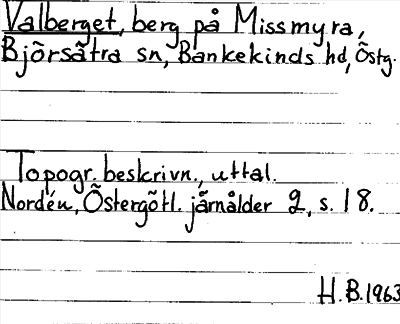 Valberget, berg på Missmyra,
Björsätra sn, Bankekinds hd, Östg.
Topogr. beskrivn., uttal.
Nordén, Östergötl. järnålder 2, s. 18.
H.B.1963